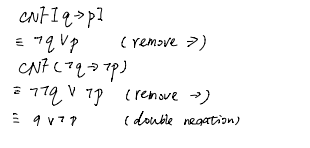 CNF [q→p]
≡ ¬q ∨ p (remove →)
CNF (¬q → ¬p)
≡ ¬¬q ∨ ¬p (remove →)
≡ q ∨ ¬p (double negation)